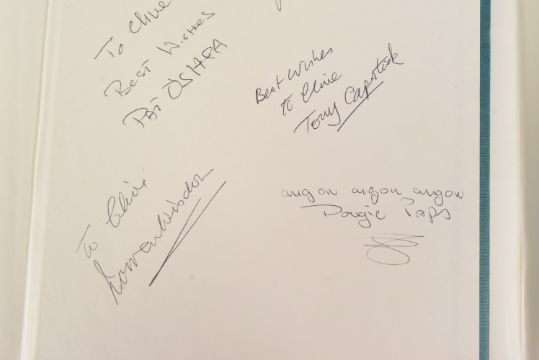 To Clive
Best Wishes
PAT O'SHEA
Best Wishes
To Clive
Tony Capstick
To Clive
Norman Wisdom
angon angon angon
Dougie Paps